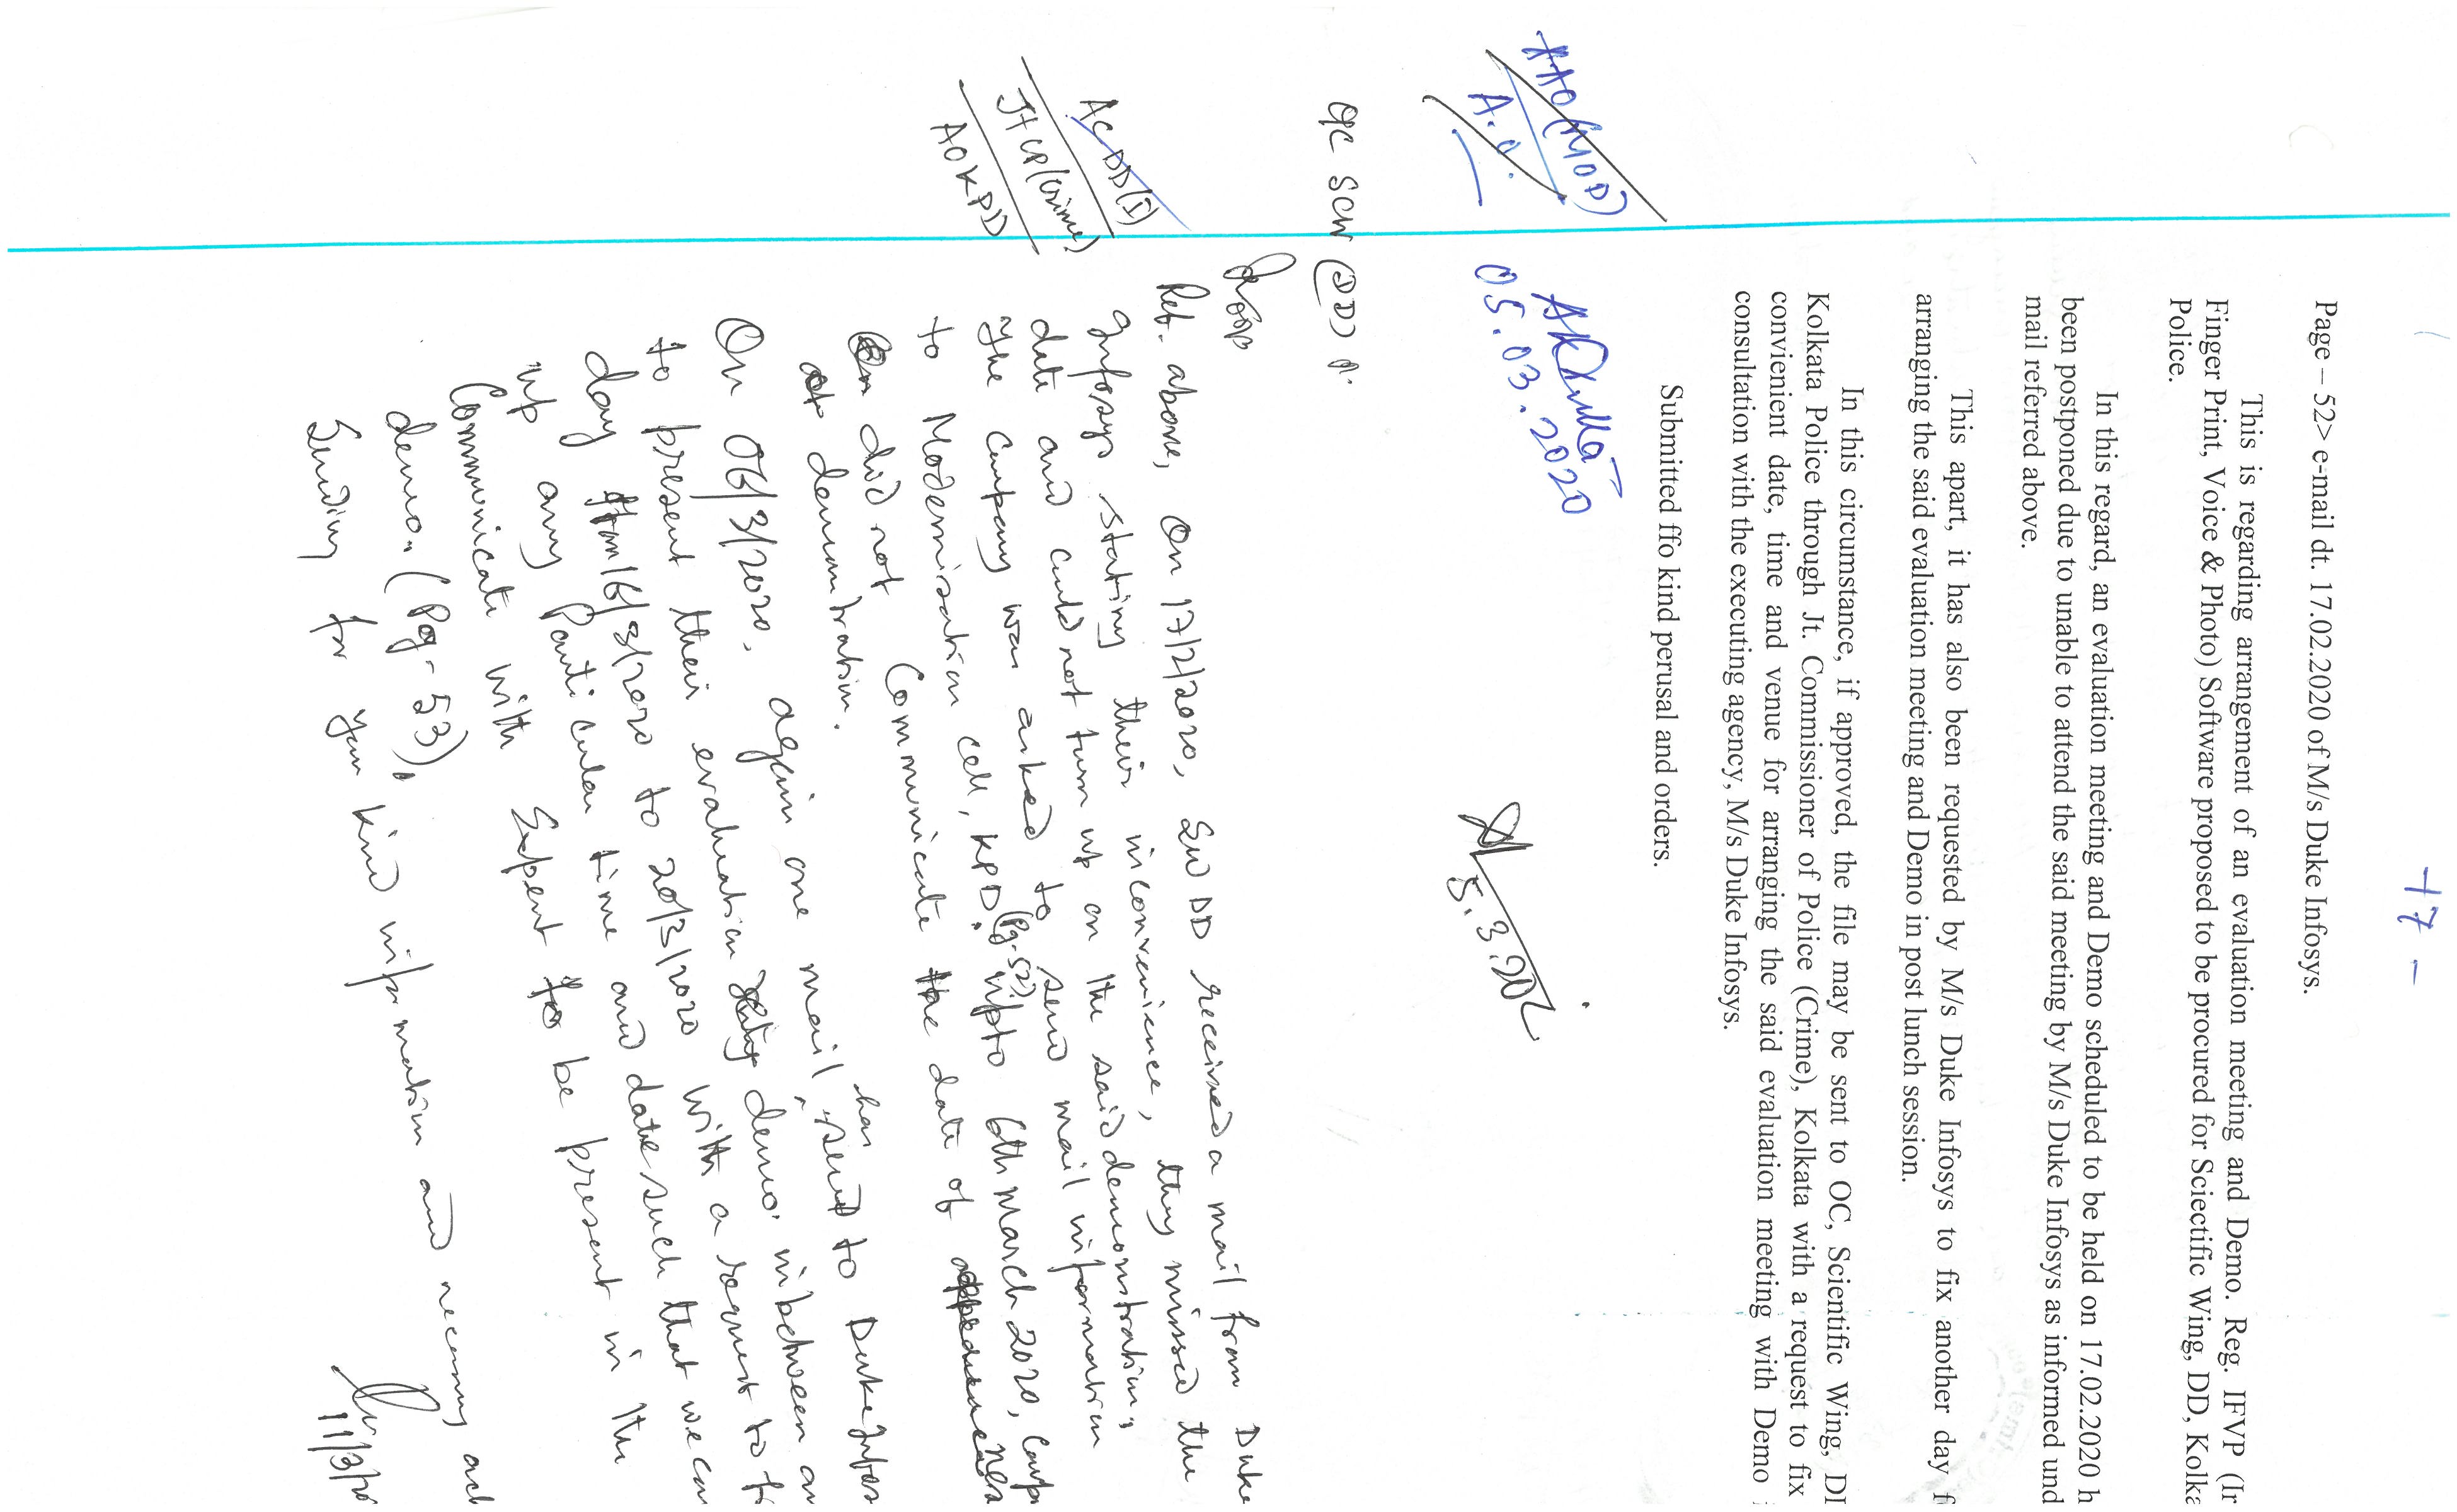 -17-
Page – 52> e-mail dt. 17.02.2020 of M/s Duke Infosys.
This is regarding arrangement of an evaluation meeting and Demo. Reg. IFVP (Ir
Finger Print, Voice & Photo) Software proposed to be procured for Sciectific Wing, DD, Kolka
Police.
In this regard, an evaluation meeting and Demo scheduled to be held on 17.02.2020 h
been postponed due to unable to attend the said meeting by M/s Duke Infosys as informed und
mail referred above.
This apart, it has also been requested by M/s Duke Infosys to fix another day f
arranging the said evaluation meeting and Demo in post lunch session.
In this circumstance, if approved, the file may be sent to OC, Scientific Wing, DD
Kolkata Police through Jt. Commissioner of Police (Crime), Kolkata with a request to fix
convienient date, time and venue for arranging the said evaluation meeting with Demo i
consultation with the executing agency, M/s Duke Infosys.
Submitted ffo kind perusal and orders.
AAO (MOD)
A.O.
05.03.2020
5.3.202
OC SCW (DD)
Ref. above, On 17/2/2020, SW DD received a mail from Duke
Infosys stating their inconvenience, they missed the
date and could not turn up on the said demonstration.
The Company was asked to send mail information
to Modernisation cell, KPD. (Pg-52) upto 6th March 2020, Comp
did not Communicate the date of
demontration.
AC DD(I)
Jt CP (Crime)
AO KPD
On 06/3/2020, again one mail has send to Duke Infos
to present their evaluation demo. inbetween an
day from 16/3/2020 to 20/3/2020 with a request to fi
up any Particular time and date such that we can
Communicate with Expert to be present in the
demo. (Pg-53).
Sending for your kind information and necessary act
11/3/20